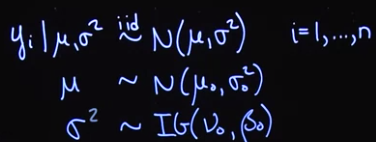 yᵢ | μ, σ² iid ~ N(μ, σ²) i = 1, ..., n
μ ~ N(μ₀, σ₀²)
σ² ~ IG(ν₀, β₀)